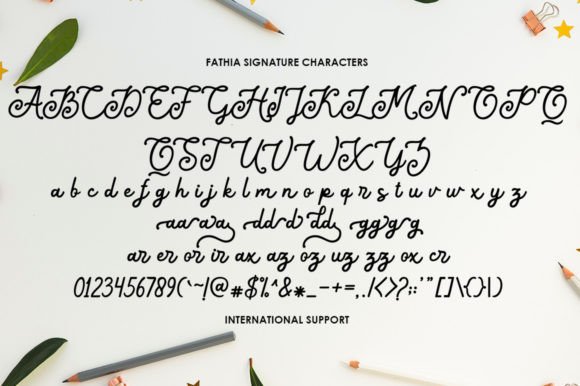 FATHIA SIGNATURE CHARACTERS
ABCDEFGHIJKLMNOPQ
QSTUVWXYZ
a b c d e f g h i j k l m n o p q r s t u v w x y z
aaaa dddd gggg
ar er or ir ax az oz uz zz ox cr
0123456789(`~!@#$%^&*_-+=,./<>?;:'"[]\{}|)
INTERNATIONAL SUPPORT